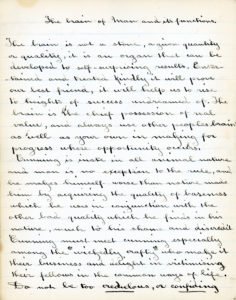 The brain of Man and its functions.
The brain is not a store, a given quantity
or quality, it is an organ that can be
developed to self-surprising results. Enter-
tained and treated kindly it will prove
our best friend, it will help us to rise
to heights of success undreamed of. The
brain is the chief possession of real
value, and always use other peoples brains
as well as your own in making for
progress where opportunity occurs.
Cunning is innate in all animal nature
and man is no exception to the rule, and
he makes himself worse than nature made
him by acquiring the quality of baseness
which he uses in conjunction with the
other bad quality which he finds in his
nature, much to his shame and discredit
Cunning must meet cunning especially
among the wicked, crafty, who make it
their business and delight in victimising
their fellows in the common ways of life.
Do not be too credulous, or confiding